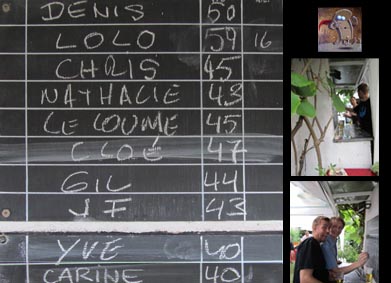 DENIS 50
LOLO 59 16
CHRIS 45
NATHALIE 43
LE LOUME 45
CLOÉ 47
GIL 44
JF 43
YVE 40
CARINE 40